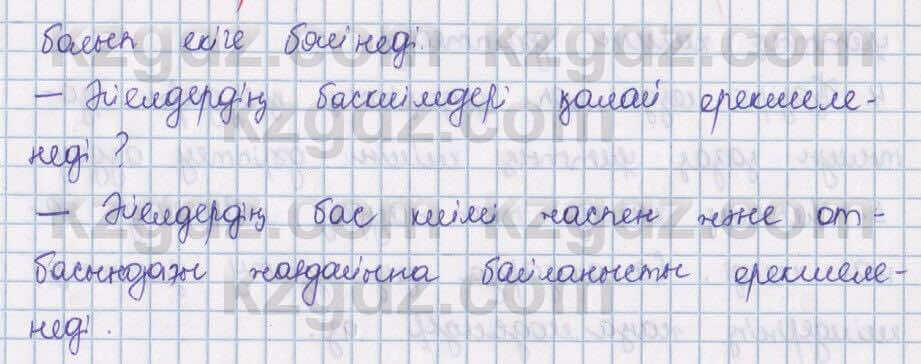 болып екіге бөлінеді.
— Әйелдердің баскиімдері қалай ерекшеле-
неді?
— Әйелдердің бас киімі жаспен және от-
басындағы жағдайына байланысты ерекшеле-
неді.
kzgdz.com